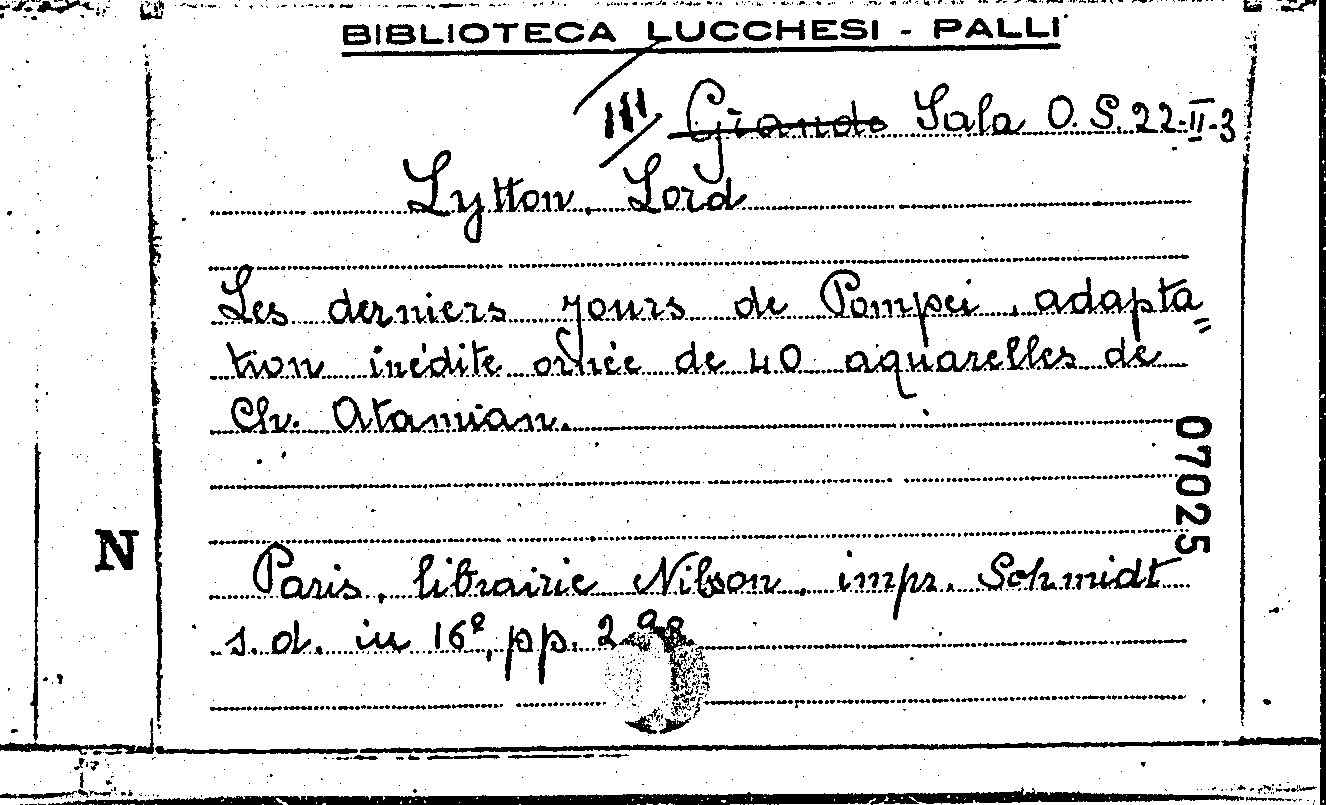 BIBLIOTECA LUCCHESI - PALLI
III Grande Sala O.S. 22-II-3
Lytton, Lord
Les derniers jours de Pompei, adapta=
tion inédite ornée de 40 aquarelles de
Ch. Atamian.
07025
N
Paris, librairie Nilsson, impr. Schmidt
s.d. in 16º, pp.